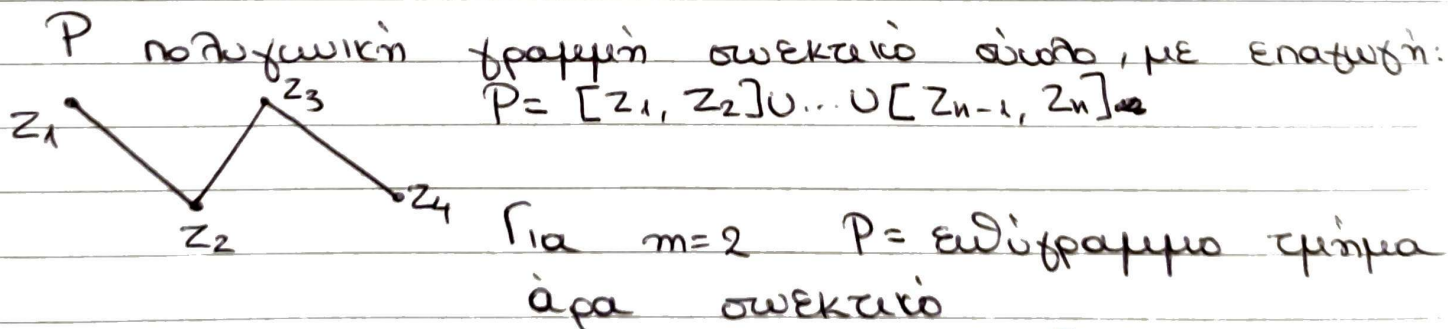 P πολυγωνική γραμμή συνεκτικό σύνολο, με επαγωγή:
z₃ P = [z₁, z₂]∪...∪[z_{n-1}, z_n]
z₁
z₄
z₂ Για m=2 P = ευθύγραμμο τμήμα
άρα συνεκτικό